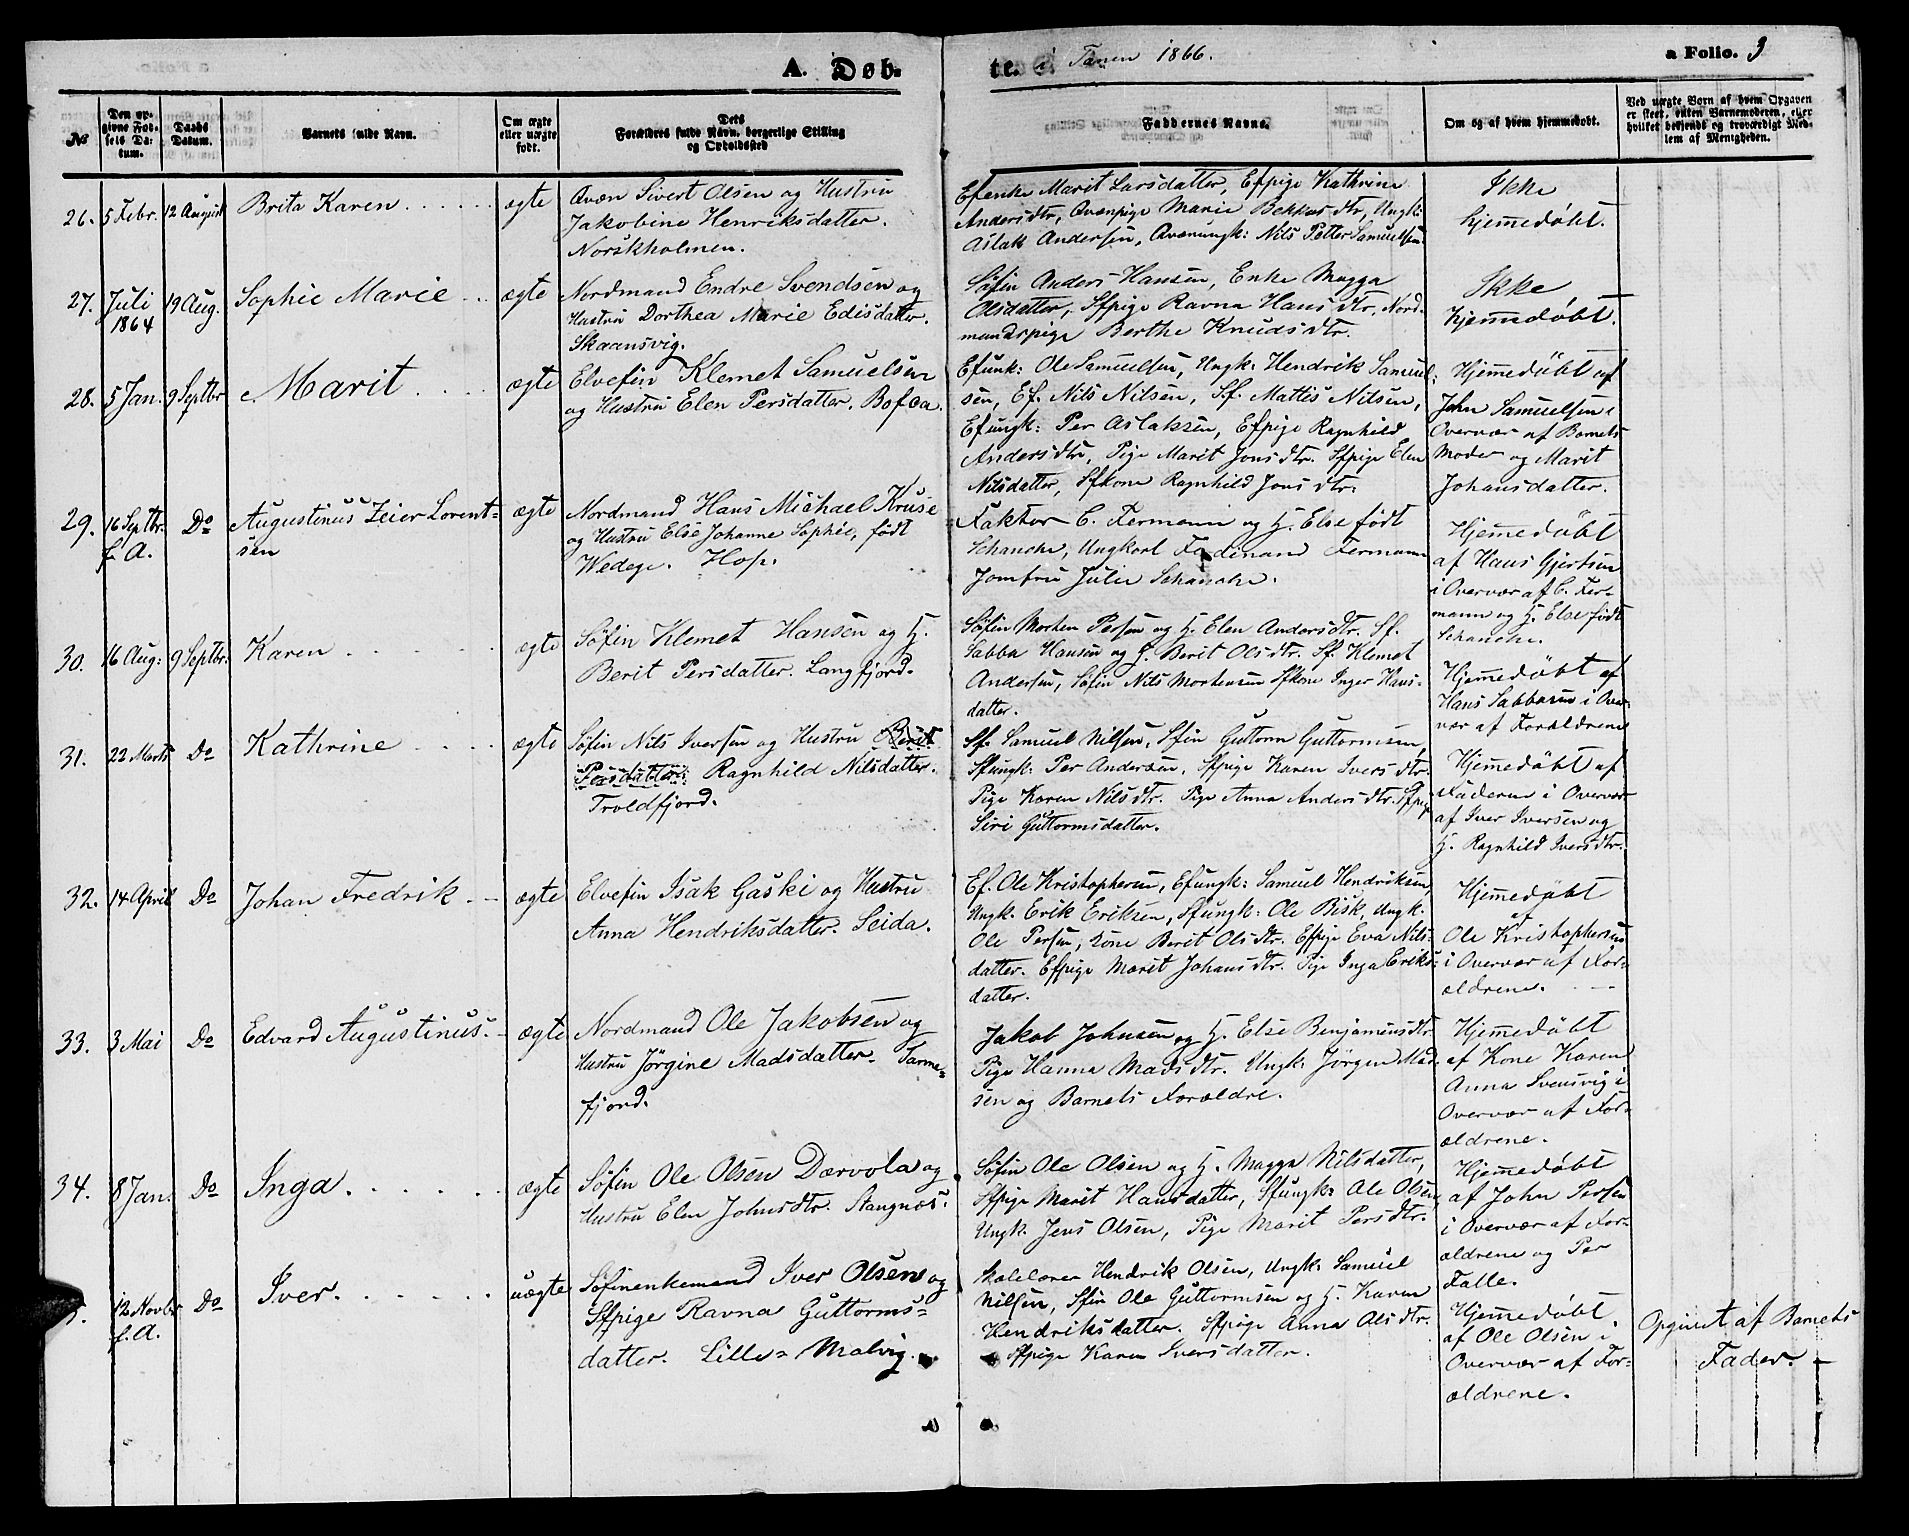 A. Døb-
te. i Tanen 1866.
a Folio. 3
No
Den op-
givne Fød-
sels Da-
tum.
Daabs
Datum.
Barnets fulde Navn.
Om ægte
eller uægte
født.
Dets
Forældres fulde Navn, borgerlige Stilling
og Opholdssted
Faddernes Navne.
Om og af hvem hjemmedøbt.
Ved uægte Børn af hvem Opgaven
er skeet, enten Barnemoderen, eller
hvilket bekjendt og troværdigt Med-
lem af Menigheden.
26. 5 Febr. 12 August Brita Karen ægte
Qvæn Sivert Olsen og Hustru
Jakobine Henriksdatter.
Norskholmen.
Efenke Marit Larsdatter, Efpige Kathrine
Andersdtr, Qvænpige Marie Bekkusdtr, Ungk:
Aslak Andersen, Qvænungk: Nils Petter Samuelsen
Ikke
hjemedøbt.
27. Juli
1864 19 Aug. Sophie Marie ægte
Nordmand Endre Svendsen og
Hustru Dorthea Marie Edisdatter.
Skaansvig.
Søfin Anders Hansen, Enke Magga
Olsdatter, Sfpige Ravna Hansdtr, Nord-
mandspige Berthe Knudsdtr.
Ikke
hjemedøbt.
28. 5 Jan. 9 Septbr Marit ægte
Elvefin Klemet Samuelsen
og Hustru Elen Persdatter. Bofœa.
Efunk: Ole Samuelsen, Ungk: Hendrik Samuel-
sen, Ef. Nils Nilsen, Sf. Mattis Nilsen,
Efungk: Per Aslaksen, Efpige Ragnhild
Andersdtr, Pige Marit Jonsdtr. Sfpige Elen
Nilsdatter, Sfkone Ragnhild Jonsdtr.
Hjemedøbt af
John Samuelsen i
Overvær af Barnets
Moder og Marit
Johansdatter.
29. 16 Septbr.
f. A. Do Augustinus Zeier Lorent-
sen ægte
Nordmand Hans Michael Kruse
og Hustru Else Johanne Sophie, født
Wedege. Hop.
Faktor C. Fermann og H. Else født
Schanche, Ungkarl Ferdinand Fermann
Jomfru Julie Schanche.
Hjemedøbt
af Hans Gjertsen
i Overvær af C. Fer-
mann og H. Else født
Schanche.
30. 16 Aug: 9 Septbr. Karen ægte
Søfin Klemet Hansen og H.
Berit Persdatter. Langfjord.
Søfin Morten Persen og H. Elen Andersdtr. Sf.
Sabba Hansen og H. Berit Olsdtr. Sf. Klemet
Andersen, Søfin Nils Mortensen Sfkone Inger Hans-
datter.
Hjemedøbt af
Hans Sabbasen i Over-
vær af Forældrene
31. 22 Marts Do Kathrine ægte
Søfin Nils Iversen og Hustru Berit
Persdatter. Ragnhild Nilsdatter.
Troldfjord.
Sf. Samuel Nilsen, Sfin Guttorm Guttormsen,
Sfungk: Per Andersen, Sfpige Karen Iversdtr.
Pige Karen Nilsdtr. Pige Anna Andersdtr. Sfpige
Siri Guttormsdatter.
Hjemedøbt af
Faderen i Overvær
af Iver Iversen og
H. Ragnhild Iversdtr.
32. 14 April Do Johan Fredrik ægte
Elvefin Isak Gaski og Hustru
Anna Hendriksdatter. Seida.
Ef. Ole Kristophersen, Efungk: Samuel Hendriksen,
Ungk. Erik Eriksen, Sfungk: Ole Bisk, Ungk.
Ole Persen, Kone Berit Olsdtr. Efpige Eva Nils-
datter. Efpige Marit Johansdtr. Pige Inga Eriks-
datter.
Hjemedøbt
af
Ole Kristophersen
i Overvær af For-
ældrene.
33. 3 Mai Do Edvard Augustinus. ægte
Nordmand Ole Jakobsen og
Hustru Jörgine Madsdatter. Tarme-
fjord.
Jakob Johnsen og H. Else Benjaminsdtr.
Pige Hanna Madsdtr. Ungk: Jörgen Mad-
sen og Barnets Forældre.
Hjemedøbt
af Kone Karen
Anna Svensvig i
Overvær af For-
ældrene.
34. 8 Jan. Do Inga ægte
Søfin Ole Olsen Dærvola og
Hustru Elen Johnsdtr. Stangnæs.
Søfin Ole Olsen og H. Magga Nilsdatter,
Sfpige Marit Hansdatter, Sfungk: Ole Olsen,
Ungk. Jens Olsen, Pige Marit Persdtr.
Hjemedøbt
af John Persen
i Overvær af For-
ældrene og Per
Falle.
5. 12 Novbr
f. A. Do Iver. uægte
Søfinenkemand Iver Olsen og
Sfpige Ravna Guttorms-
datter. Lille-Malvig.
Skolelærer Hendrik Olsen, Ungk: Samuel
Nilsen, Sfin Ole Guttormsen og H. Karen
Hendriksdatter. Sfpige Anna Olsdtr.
Sfpige Karen Iversdatter.
Hjemedøbt.
af Ole Olsen i
Overvær af For-
ældrene.
Opgivet af Barnets
Fader.